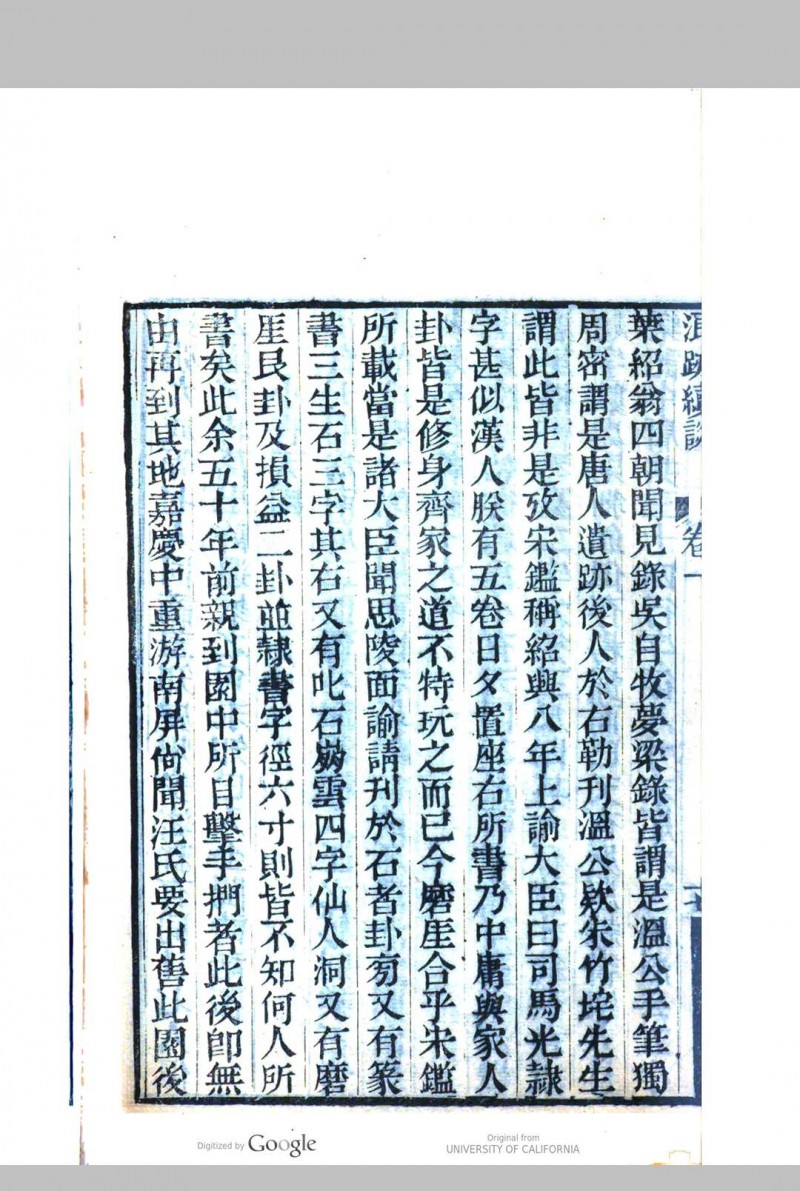 浪跡續談 卷一
葉紹翁四朝聞見錄吳自牧夢梁錄皆謂是溫公手筆獨
周密謂是唐人遺跡後人於右勒刊溫公欵朱竹垞先生
謂此皆非是攷宋鑑稱紹興八年上諭大臣曰司馬光隷
字甚似漢人朕有五卷日夕置座右所書乃中庸與家人
卦皆是修身齊家之道不特玩之而已今磨厓合乎宋鑑
所載當是諸大臣聞思陵面諭請刋於石者卦旁又有篆
書三生石三字其右又有叱石嵡雲四字仙人洞又有磨
厓艮卦及損益二卦並隷書字徑六寸則皆不知何人所
書矣此余五十年前親到園中所目擊手捫者此後卽無
由再到其地嘉慶中重游南屏尙聞汪氏要出售此園後
Digitized by Google
Original from
UNIVERSITY OF CALIFORNIA